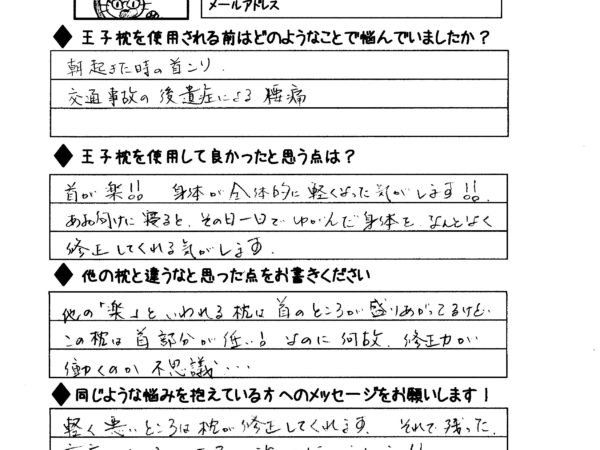 メールアドレス
◆王子枕を使用される前はどのようなことで悩んでいましたか？
朝起きた時の首こり.
交通事故の後遺症による腰痛
◆王子枕を使用して良かったと思う点は？
首が楽!! 身体が全体的に軽くなった気がします!!.
あお向けに寝ると、その日一日でゆがんだ身体を、なんとなく
修正してくれる気がします.
◆他の枕と違うなと思った点をお書きください
他の「楽」といわれる枕は首のところが盛りあがってるけど、
この枕は首部分が低い! なのに何故、修正力が
働くのか不思議...
◆同じような悩みを抱えている方へのメッセージをお願いします！
軽く悪いところは枕が修正してくれます. それで残った.